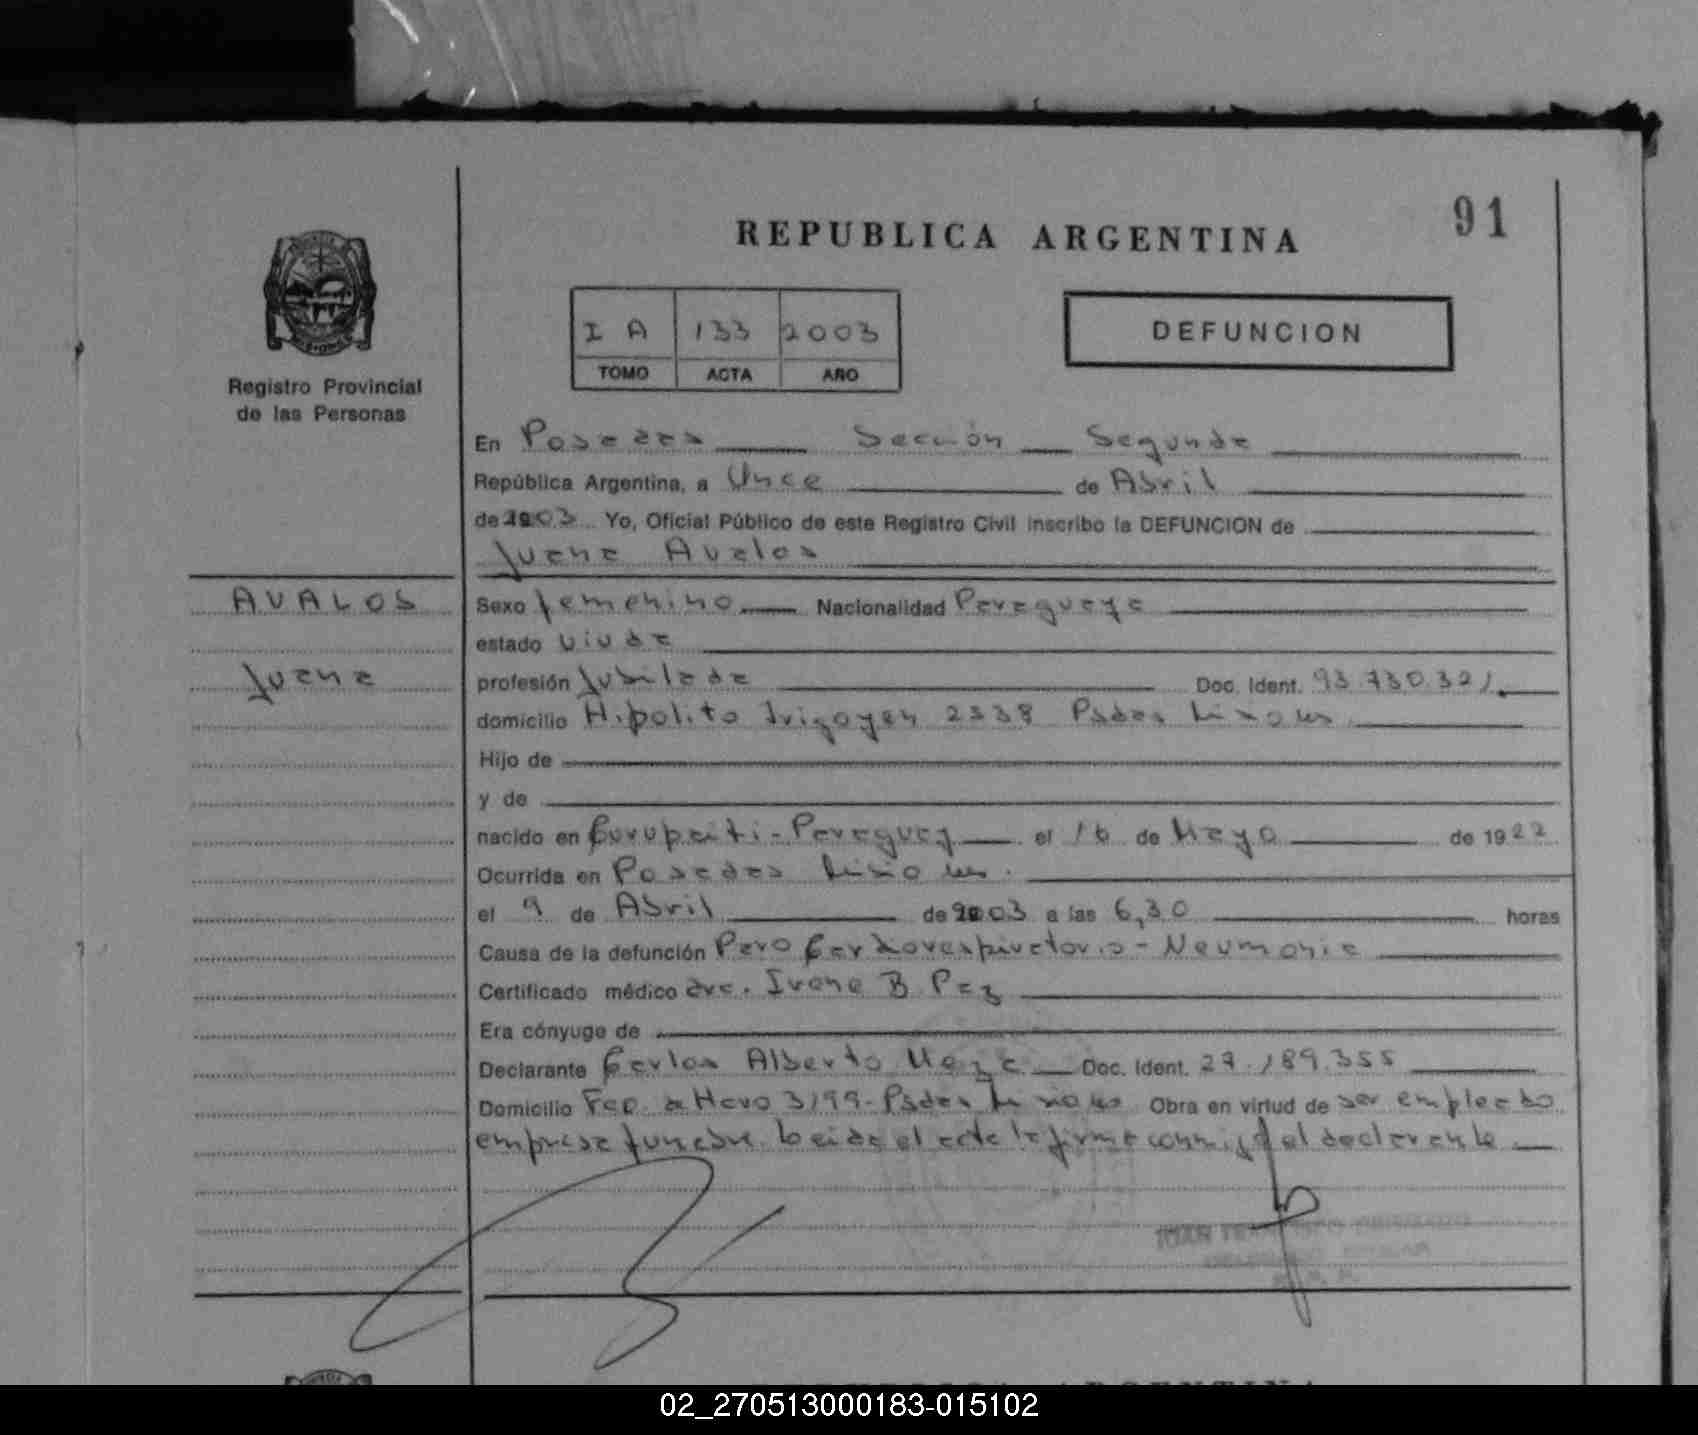 91
REPUBLICA ARGENTINA
I A 133 2003
TOMO ACTA AÑO
DEFUNCION
Registro Provincial
de las Personas
En Posadas Sección Segunda
República Argentina, a Once de Abril
de 2003 Yo, Oficial Público de este Registro Civil inscribo la DEFUNCION de
Juana Avalos
AVALOS
Juana
Sexo femenino Nacionalidad Paraguaya
estado viuda
profesión Jubilada Doc. Ident. 93.730.321
domicilio Hipolito Irigoyen 2338 Psdas Misiones
Hijo de
y de
nacido en Curupaiti - Paraguay el 16 de Mayo de 1922
Ocurrida en Posadas Misiones.
el 9 de Abril de 2003 a las 6,30 horas
Causa de la defunción Paro Cardiorespiratorio - Neumonia
Certificado médico dra. Ivone B. Paz
Era cónyuge de
Declarante Carlos Alberto Doc. Ident. 27.189.355
Domicilio Fco. de Haro 3199 - Psdas Misiones Obra en virtud de ser empleado
empresa funebre. Leida el acta la firma conmigo el declarante
02_270513000183-015102